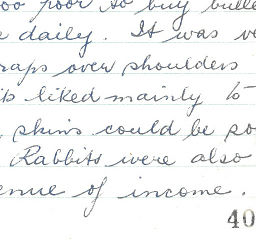 too poor to buy bulle
e daily. It was ve
raps over shoulders
its liked mainly to
, skins could be so
Rabbits were also
enue of income.
40